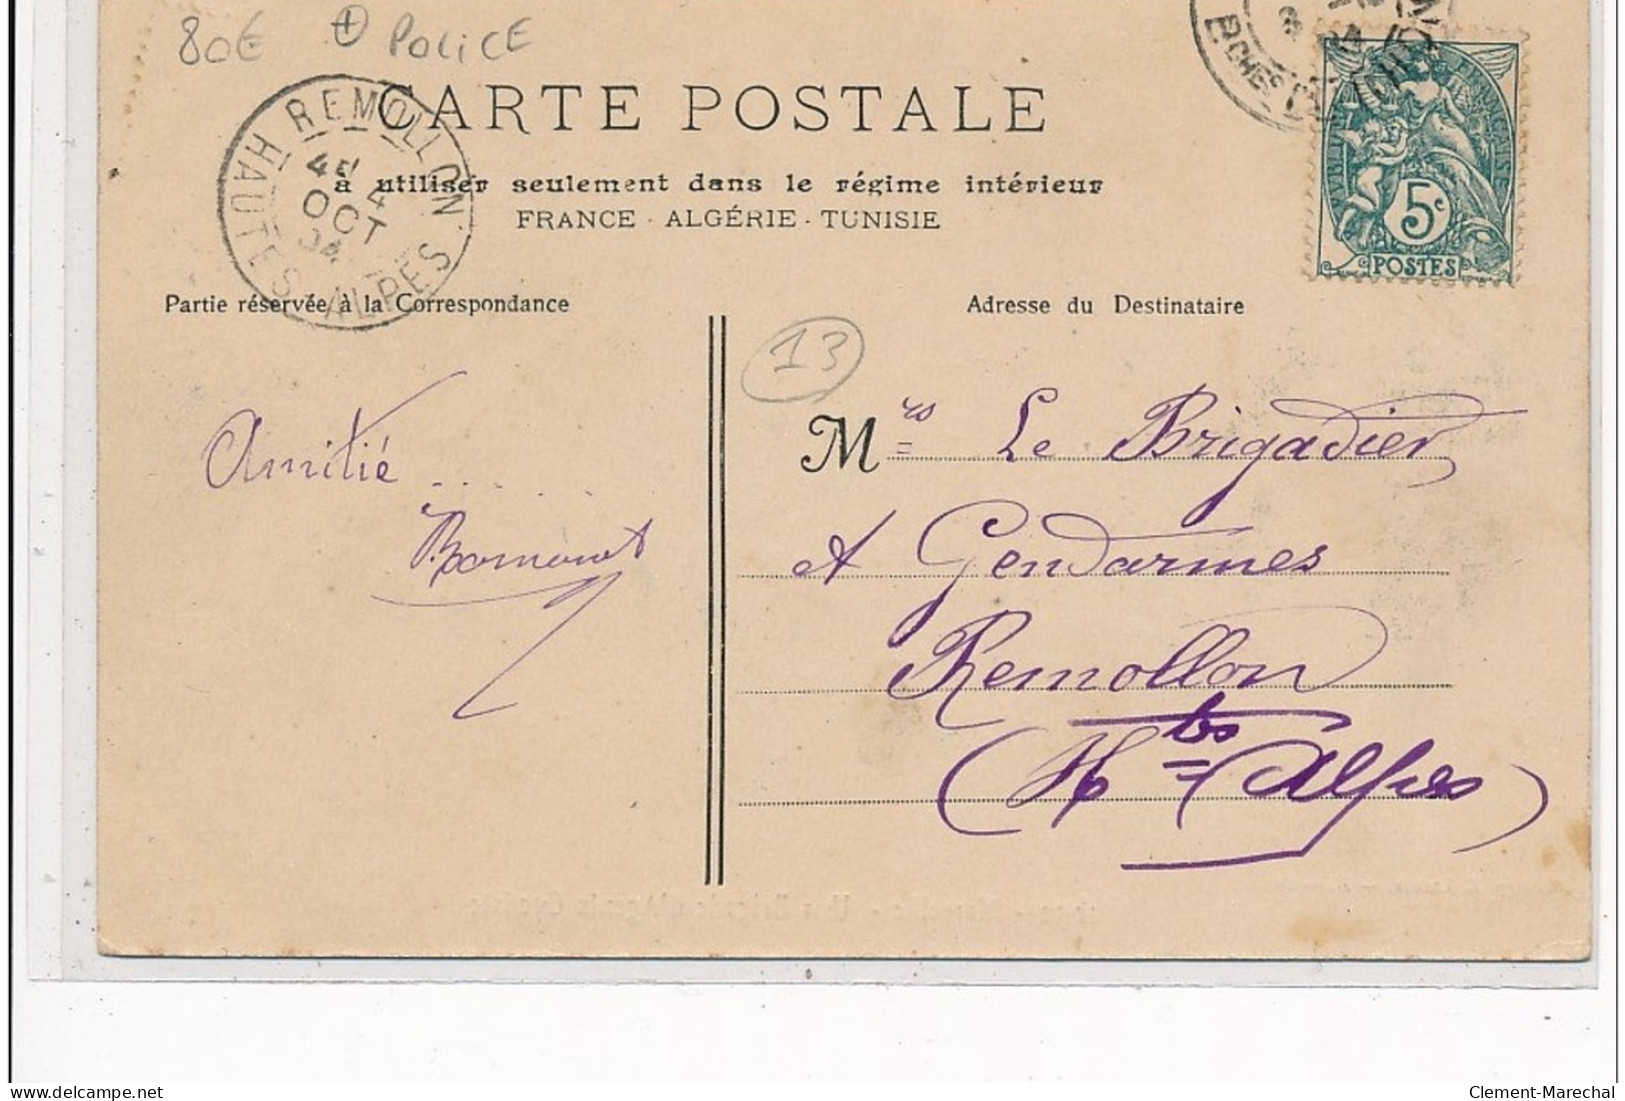 80€ + POLICE
CARTE POSTALE
à utiliser seulement dans le régime intérieur
FRANCE - ALGÉRIE - TUNISIE
REMOLLON
HAUTES-ALPES
4
OCT
04
5c
POSTES
Partie réservée à la Correspondance
Adresse du Destinataire
13
Amitié .....
Mrs Le Brigadier
A Gendarmes
Remollon
(Htes Alpes)
delcampe.net
Clement-Marechal